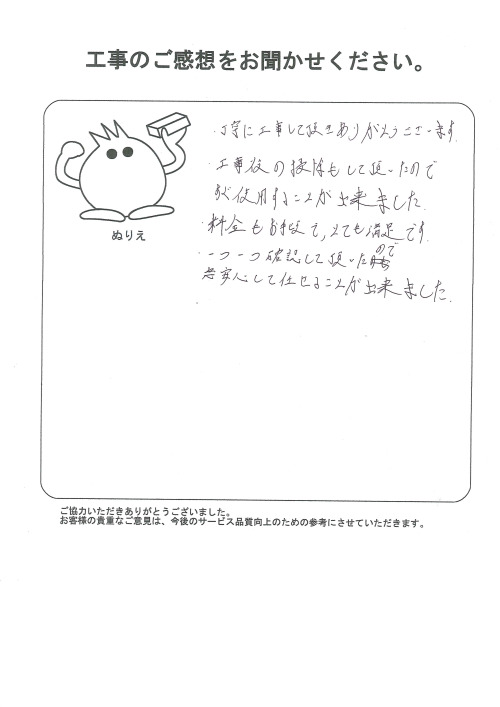 工事のご感想をお聞かせください。
・丁寧に工事して頂きありがとうございます。
・工事後の掃除もして頂いたので
すぐ使用することが出来ました。
・料金もお手頃で、とても満足です。
・一つ一つ確認して頂いたので
安心して任せることが出来ました。
ぬりえ
ご協力いただきありがとうございました。
お客様の貴重なご意見は、今後のサービス品質向上のための参考にさせていただきます。